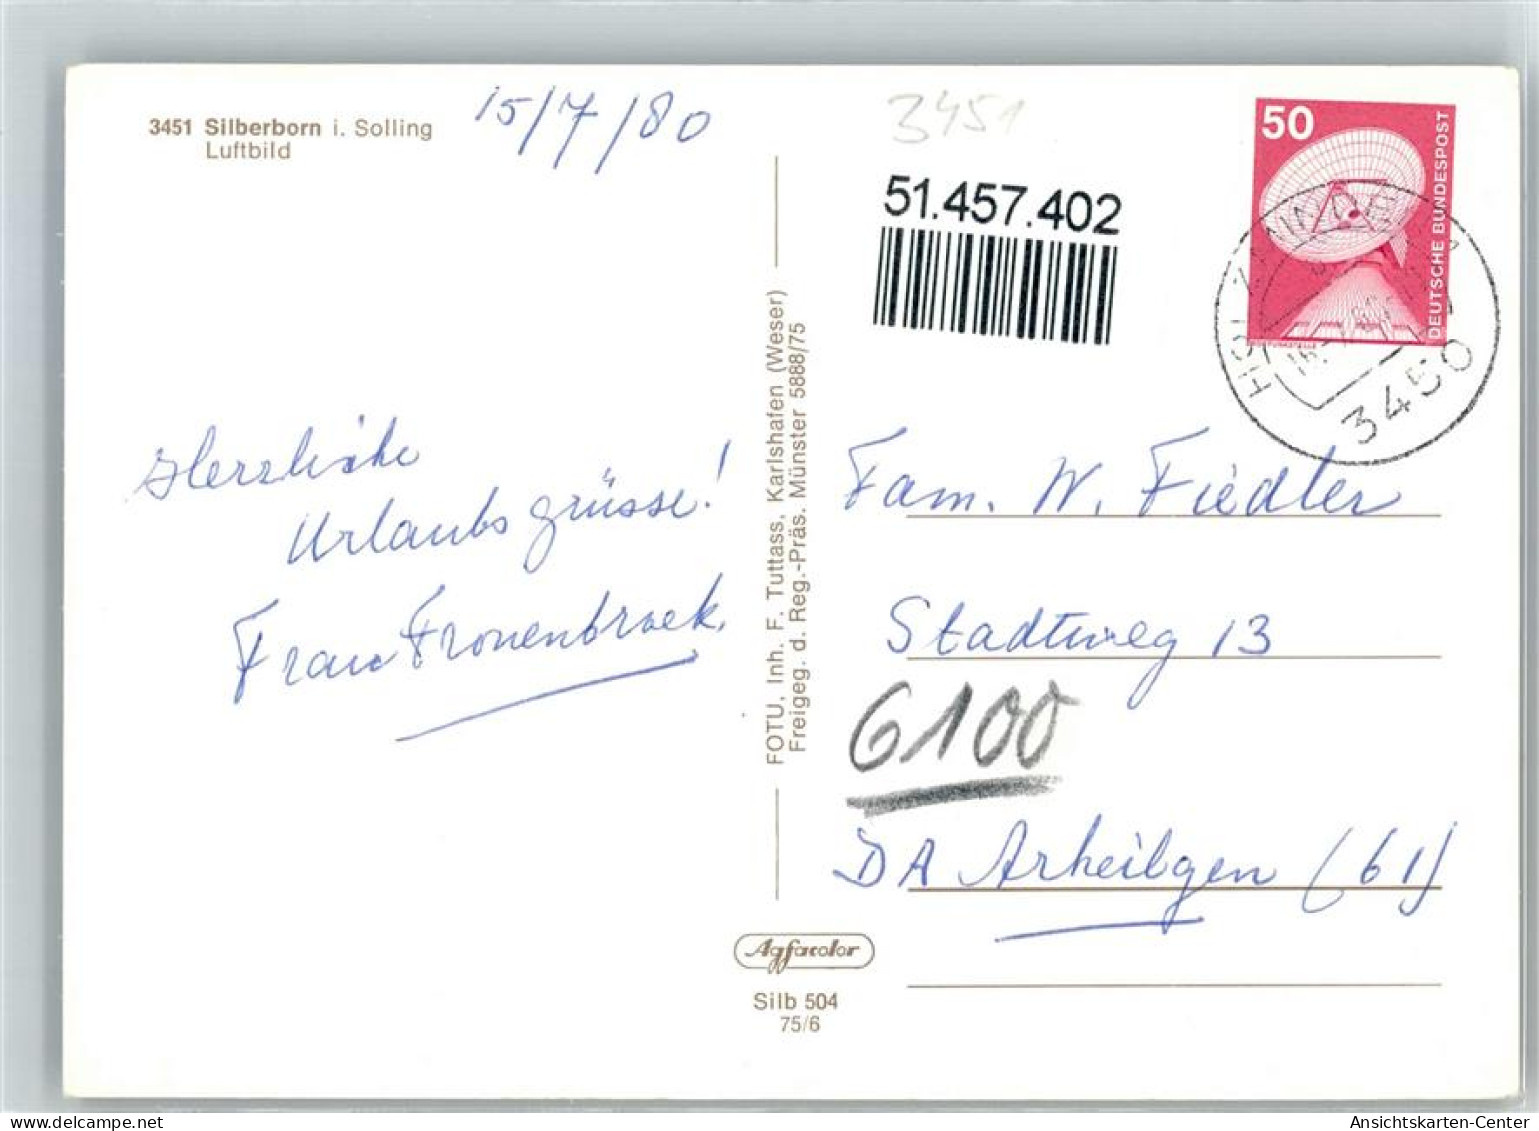 3451 Silberborn i. Solling
Luftbild
15/7/80
Herzliche
Urlaubsgrüsse!
Frau Fronenbroek.
FOTU, Inh. F. Tuttass, Karlshafen (Weser)
Freigeg. d. Reg.-Präs. Münster 5888/75
Agfacolor
Silb 504
75/6
3451
51.457.402
50
DEUTSCHE BUNDESPOST
HOLZMINDEN
3450
Fam. W. Fiedler
Stadtweg 13
6100
DA Arheilgen (61)
Ansichtskarten-Center